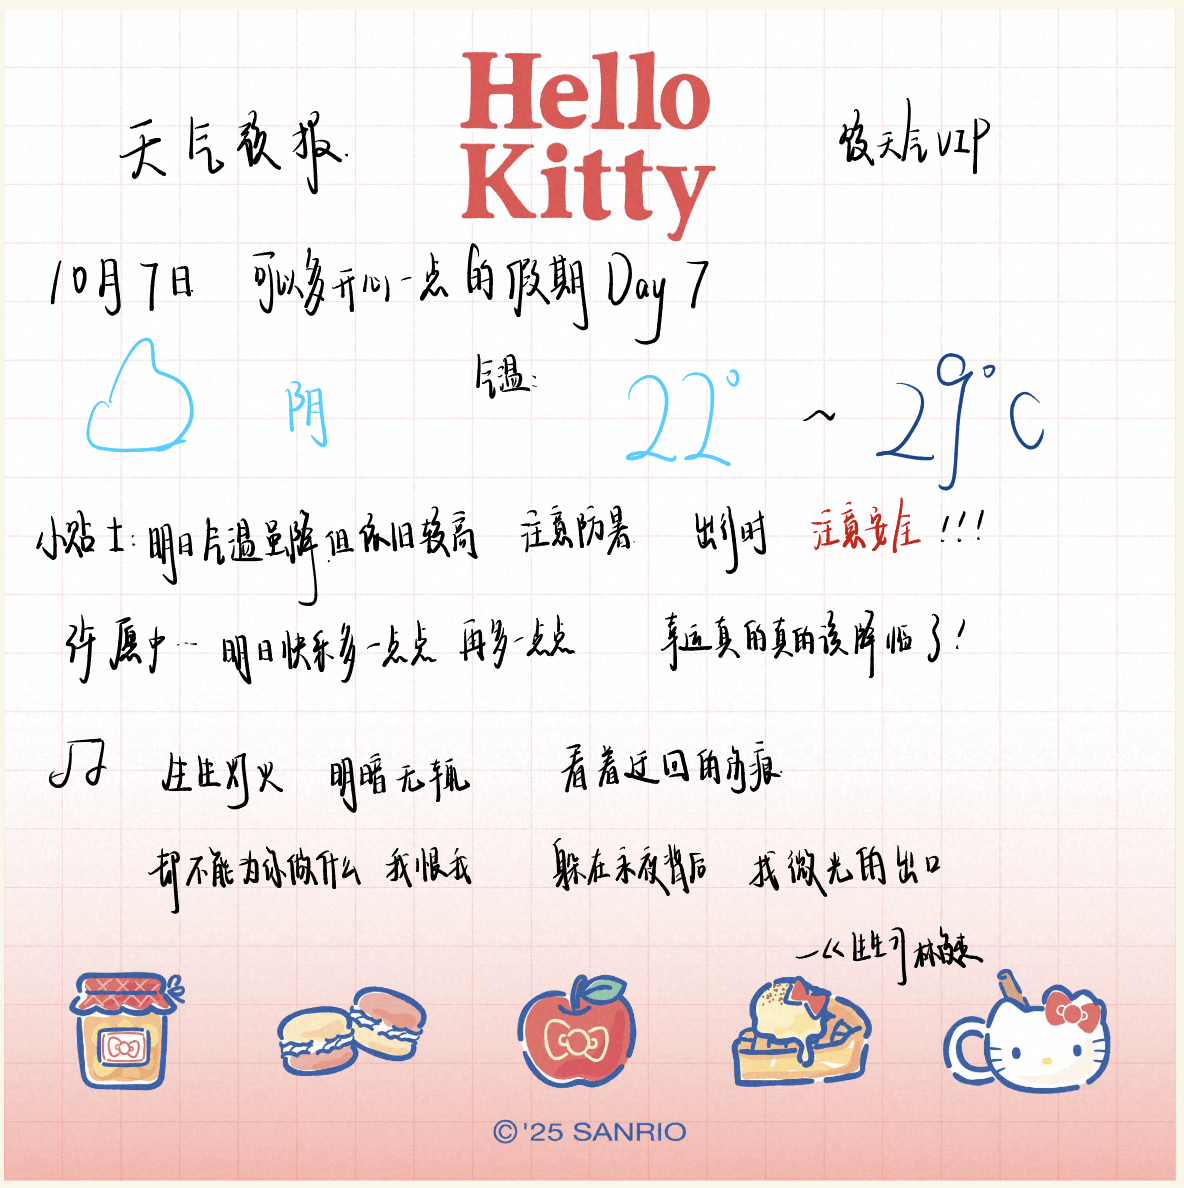 Hello
Kitty
天气预报.
饭天气VIP
10月7日 可以多开心一点的假期 Day 7
阴 气温: 22° ~ 29°C
小贴士: 明日气温虽降但依旧较高 注意防暑 出行时 注意安全!!!
许愿中… 明日快乐多一点点 再多一点点 幸运真的真的该降临了!
生生灯火 明暗无辄 看着迂回的伤痕
却不能为你做什么 我恨我 躲在永夜背后 找微光的出口
—《生生》林俊杰
©'25 SANRIO